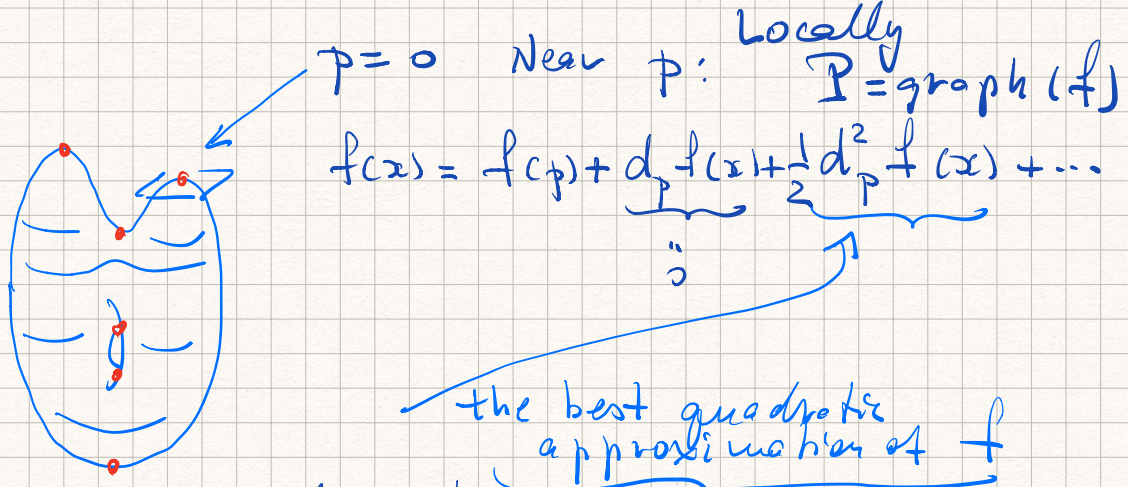 Locally
p = 0 Near p: P = graph(f)
f(x) = f(p) + d_p f(x) + 1/2 d_p^2 f(x) + ...
= 0
the best quadratic
approximation of f